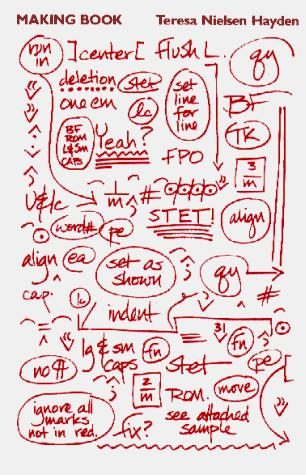 MAKING BOOK Teresa Nielsen Hayden
run in ]center[ flush L. qy
deletion stet set line for line
one em lc BF
BF ROM L&SM CAPS Yeah? TK
FPO 3/m
U&lc 1/m #
STET! align
word# pe
align ea set as shown qy
cap. lc #
indent
lg & sm caps fn 31 fn
no ¶ stet pe
2/m ROM. move
ignore all marks not in red. fix? see attached sample